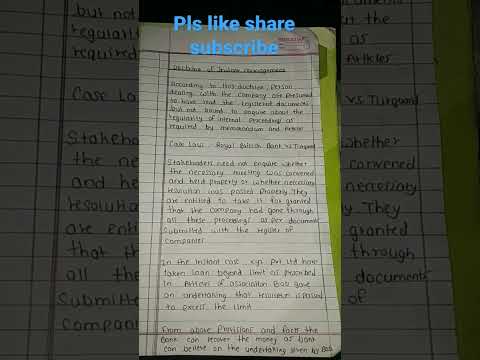 Pls like share
subscribe
Doctrine of Indoor management
According to this doctrine, Person
dealing with the company are presumed
to have read the registered documents
but not bound to enquire about the
regularity of internal Proceedings as
required by memorandum and Articles
Case Law: Royal British Bank vs Turquand
Stakeholders need not enquire whether
the necessary meeting was convened
and held properly or whether necessary
resolution was passed Properly. They
are entitled to take it for granted
that the company had gone through
all these proceedings as per document
Submitted with the register of
companies
In the instant case xyz Pvt Ltd have
taken loan beyond limit as prescribed
in Articles of association Bob gave
an undertaking that resolution is passed
to excess the limit
From above Provisions and facts the
Bank can recover the money as bank
can believe on the undertaking given by Bob
but not
regularity
required
Case Law
Stakeh
the nec
and he
resolution
are ent
that th
all the
Submitte
compan
ut the
as
Articles
vs Turquand
whether
convened
necessary
They
granted
through
document
of